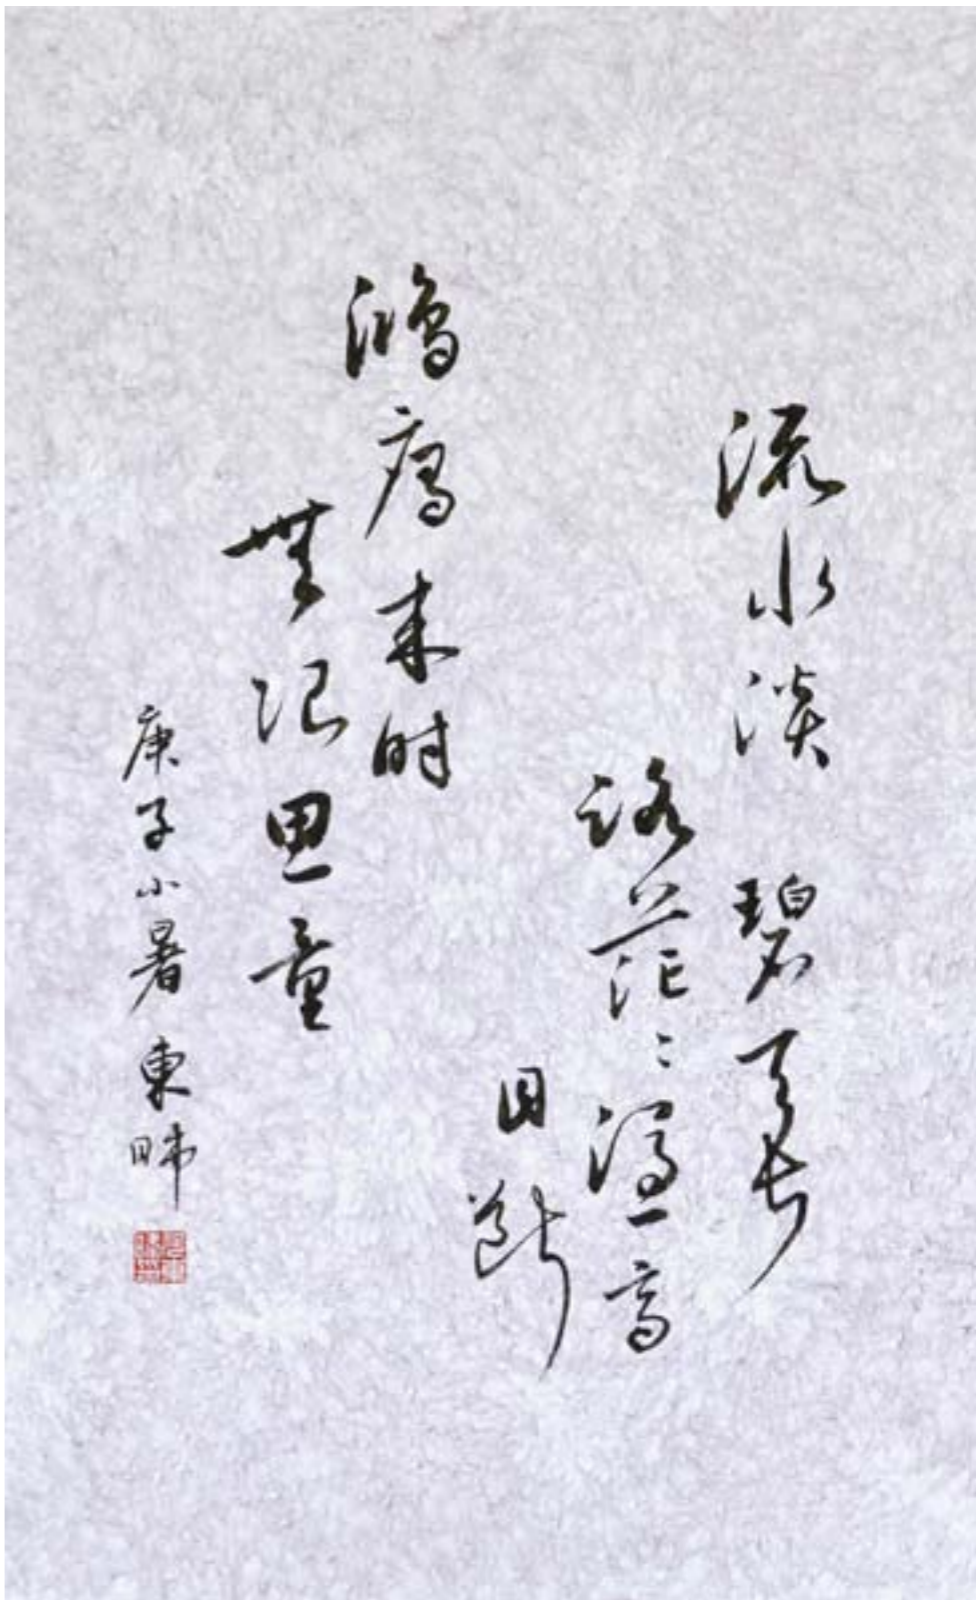 流水淡 碧天長
路茫〻憑高
目斷
鴻鴈来时
無限思量
庚子小暑 東